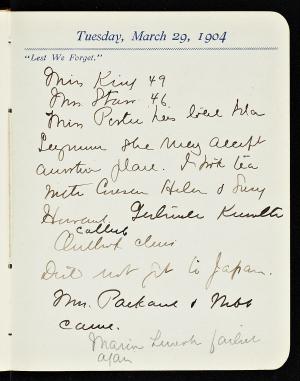 Tuesday, March 29, 1904
"Lest We Forget."
Miss King 49
Mrs. Starr 46
Miss Porter has
Seymour she may accept
another place. I took tea
with Cousin Helen & Lucy
Howard. Gertrude
called
Outlook class
Did not get to Japan.
Mrs. Packard & Miss
came.
Marion Lincoln failed
again